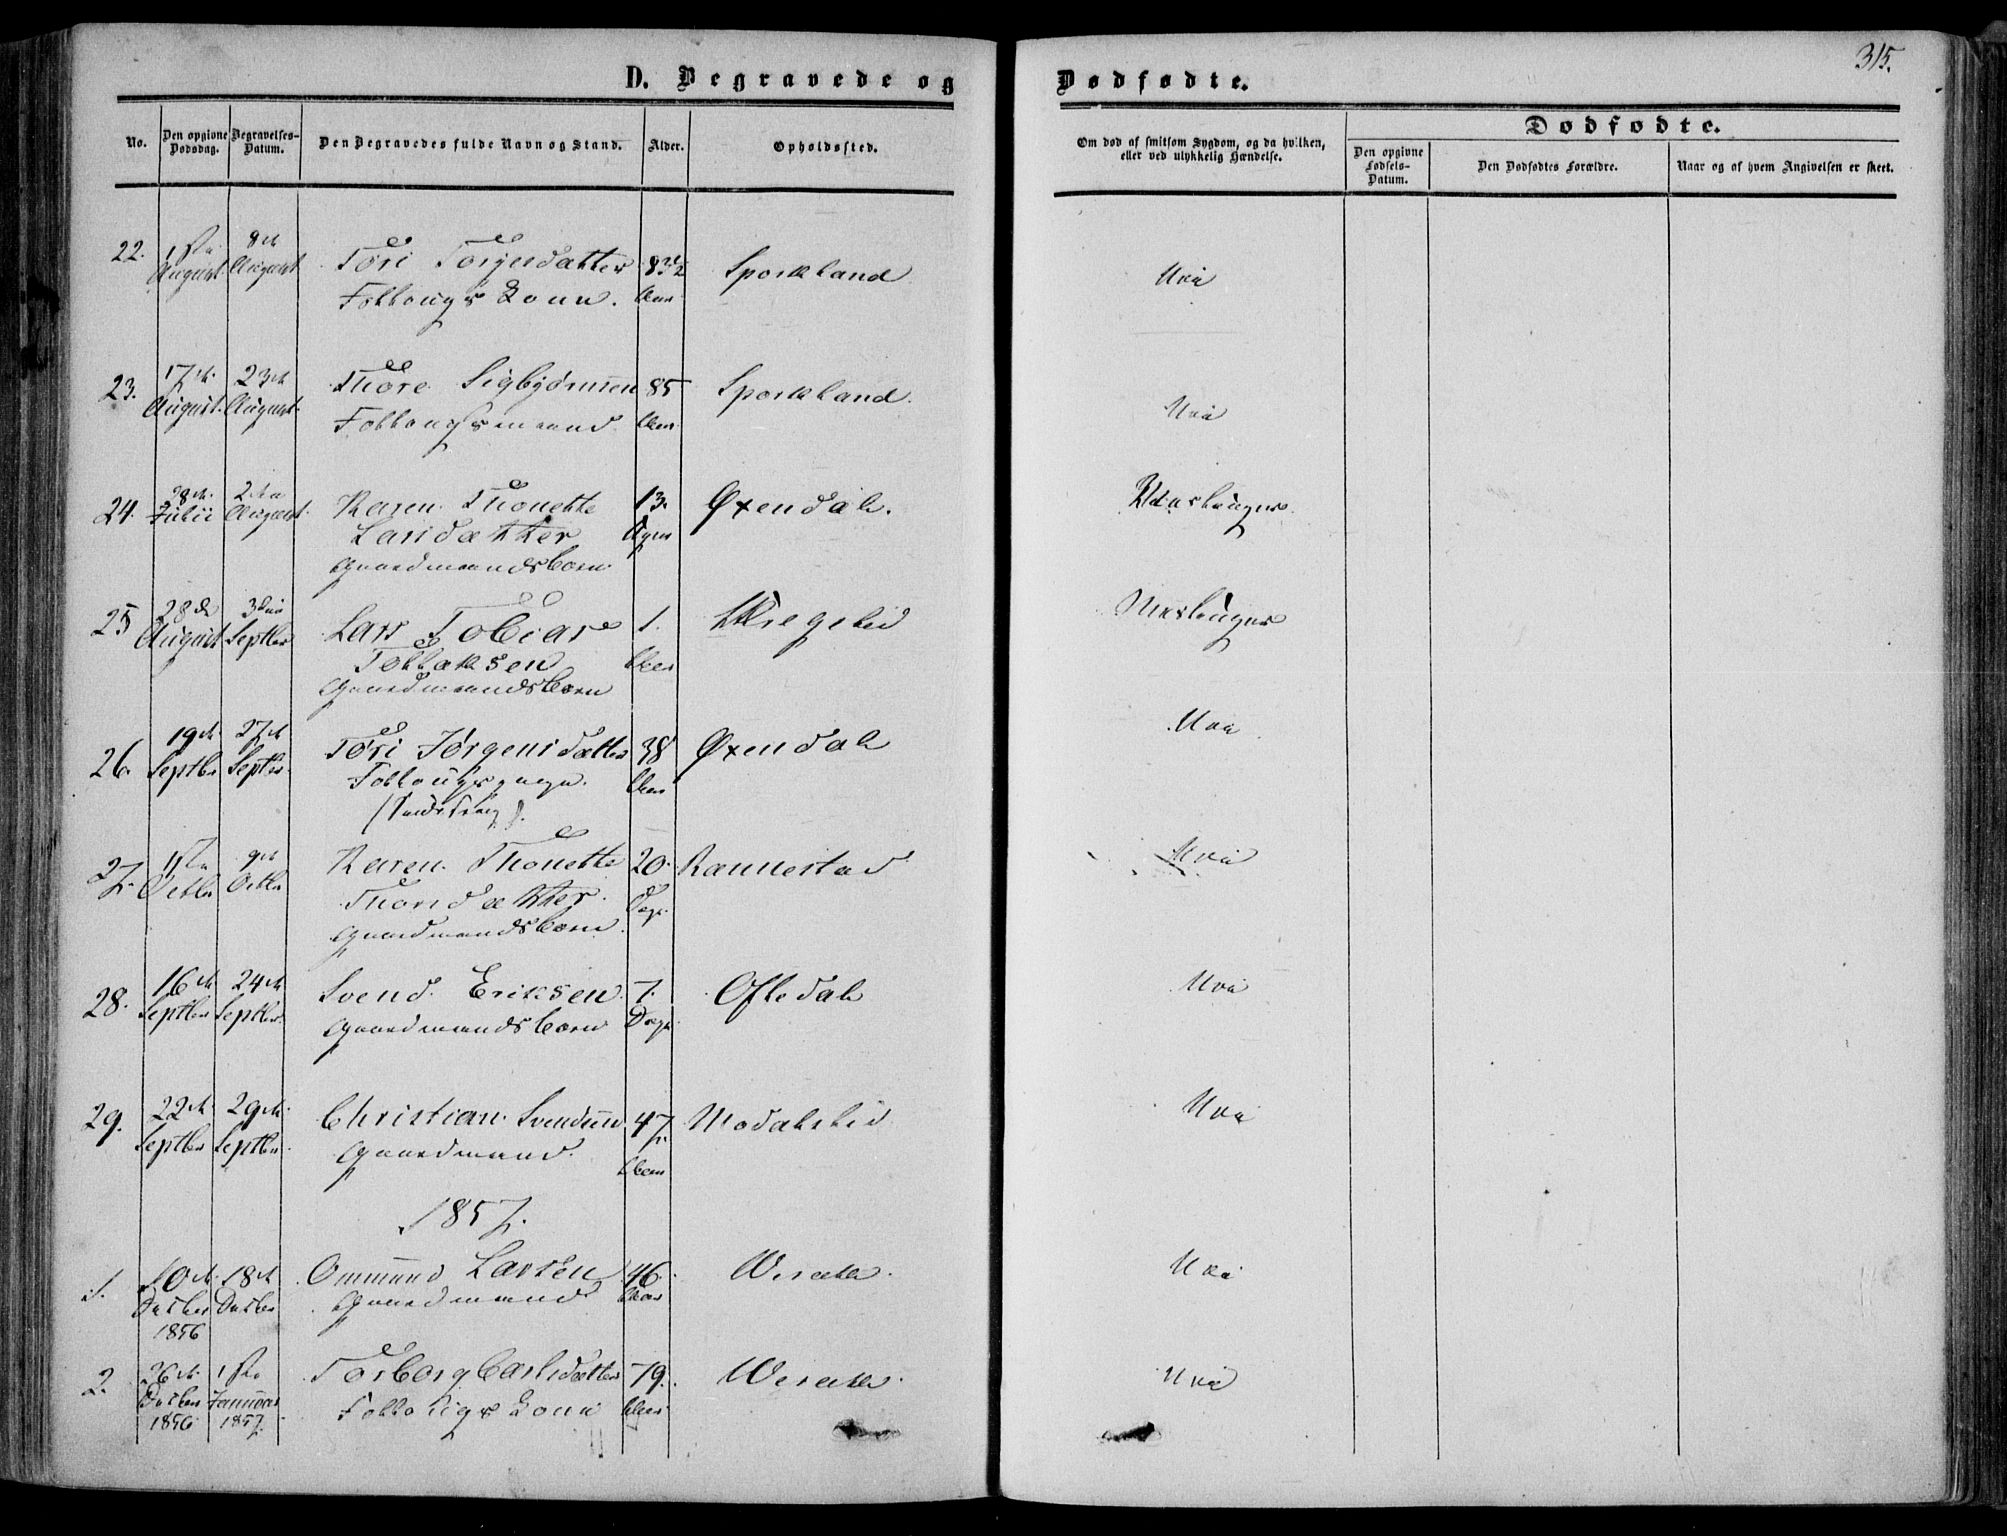 315.
D. Begravede og Dødfødte.
No.
Den opgivne Dødsdag.
Begravelses-Datum.
Den Begravedes fulde Navn og Stand.
Alder.
Opholdssted.
Om død af smitsom Sygdom, og da hvilken,
eller ved ulykkelig Hændelse.
Dødfødte.
Den opgivne Fødsels-Datum.
Den Dødfødtes Forældre.
Naar og af hvem Angivelsen er skeet.
22. 1ste 8de Tøri Torjusdatter Sporkland Nei
August August
23. 17de 23de Thore Sigbjørnsen 85 Sporkland Nei
August August
24. 28de 2den Karen Thonette 13. Øxendal
Julii August Larsdatter
Gaardmandsbarn
25 28de 3die Lars Tobias 1.
August Septbr Tollaksen Aar
Gaardmandsbarn
26. 19de 27de Tøri Jørgensdatter 38 Øxendal Nei
Septbr Septbr Aar
27. 1ste 9de Karen Thonette 20. Rannestad Nei
Octbr Octbr Thorsdatter Dage
Gaardmandsbarn
28. 16de 24de Svend Eriksen 7. Oftedal Nei
Septbr Septbr Gaardmandsbarn Dage
29. 22de 29de Christian Svendsen 47 Modalslid Nei
Septbr Septbr Gaardmand Aar
1857.
1. 10de 18de Ommund Larsen 46. Nei
Decbr Decbr Gaardmand Aar
1856
2. 26de 1ste Torborg Carlsdatter 79. Nei
Decbr Januar Aar
1856 1857.